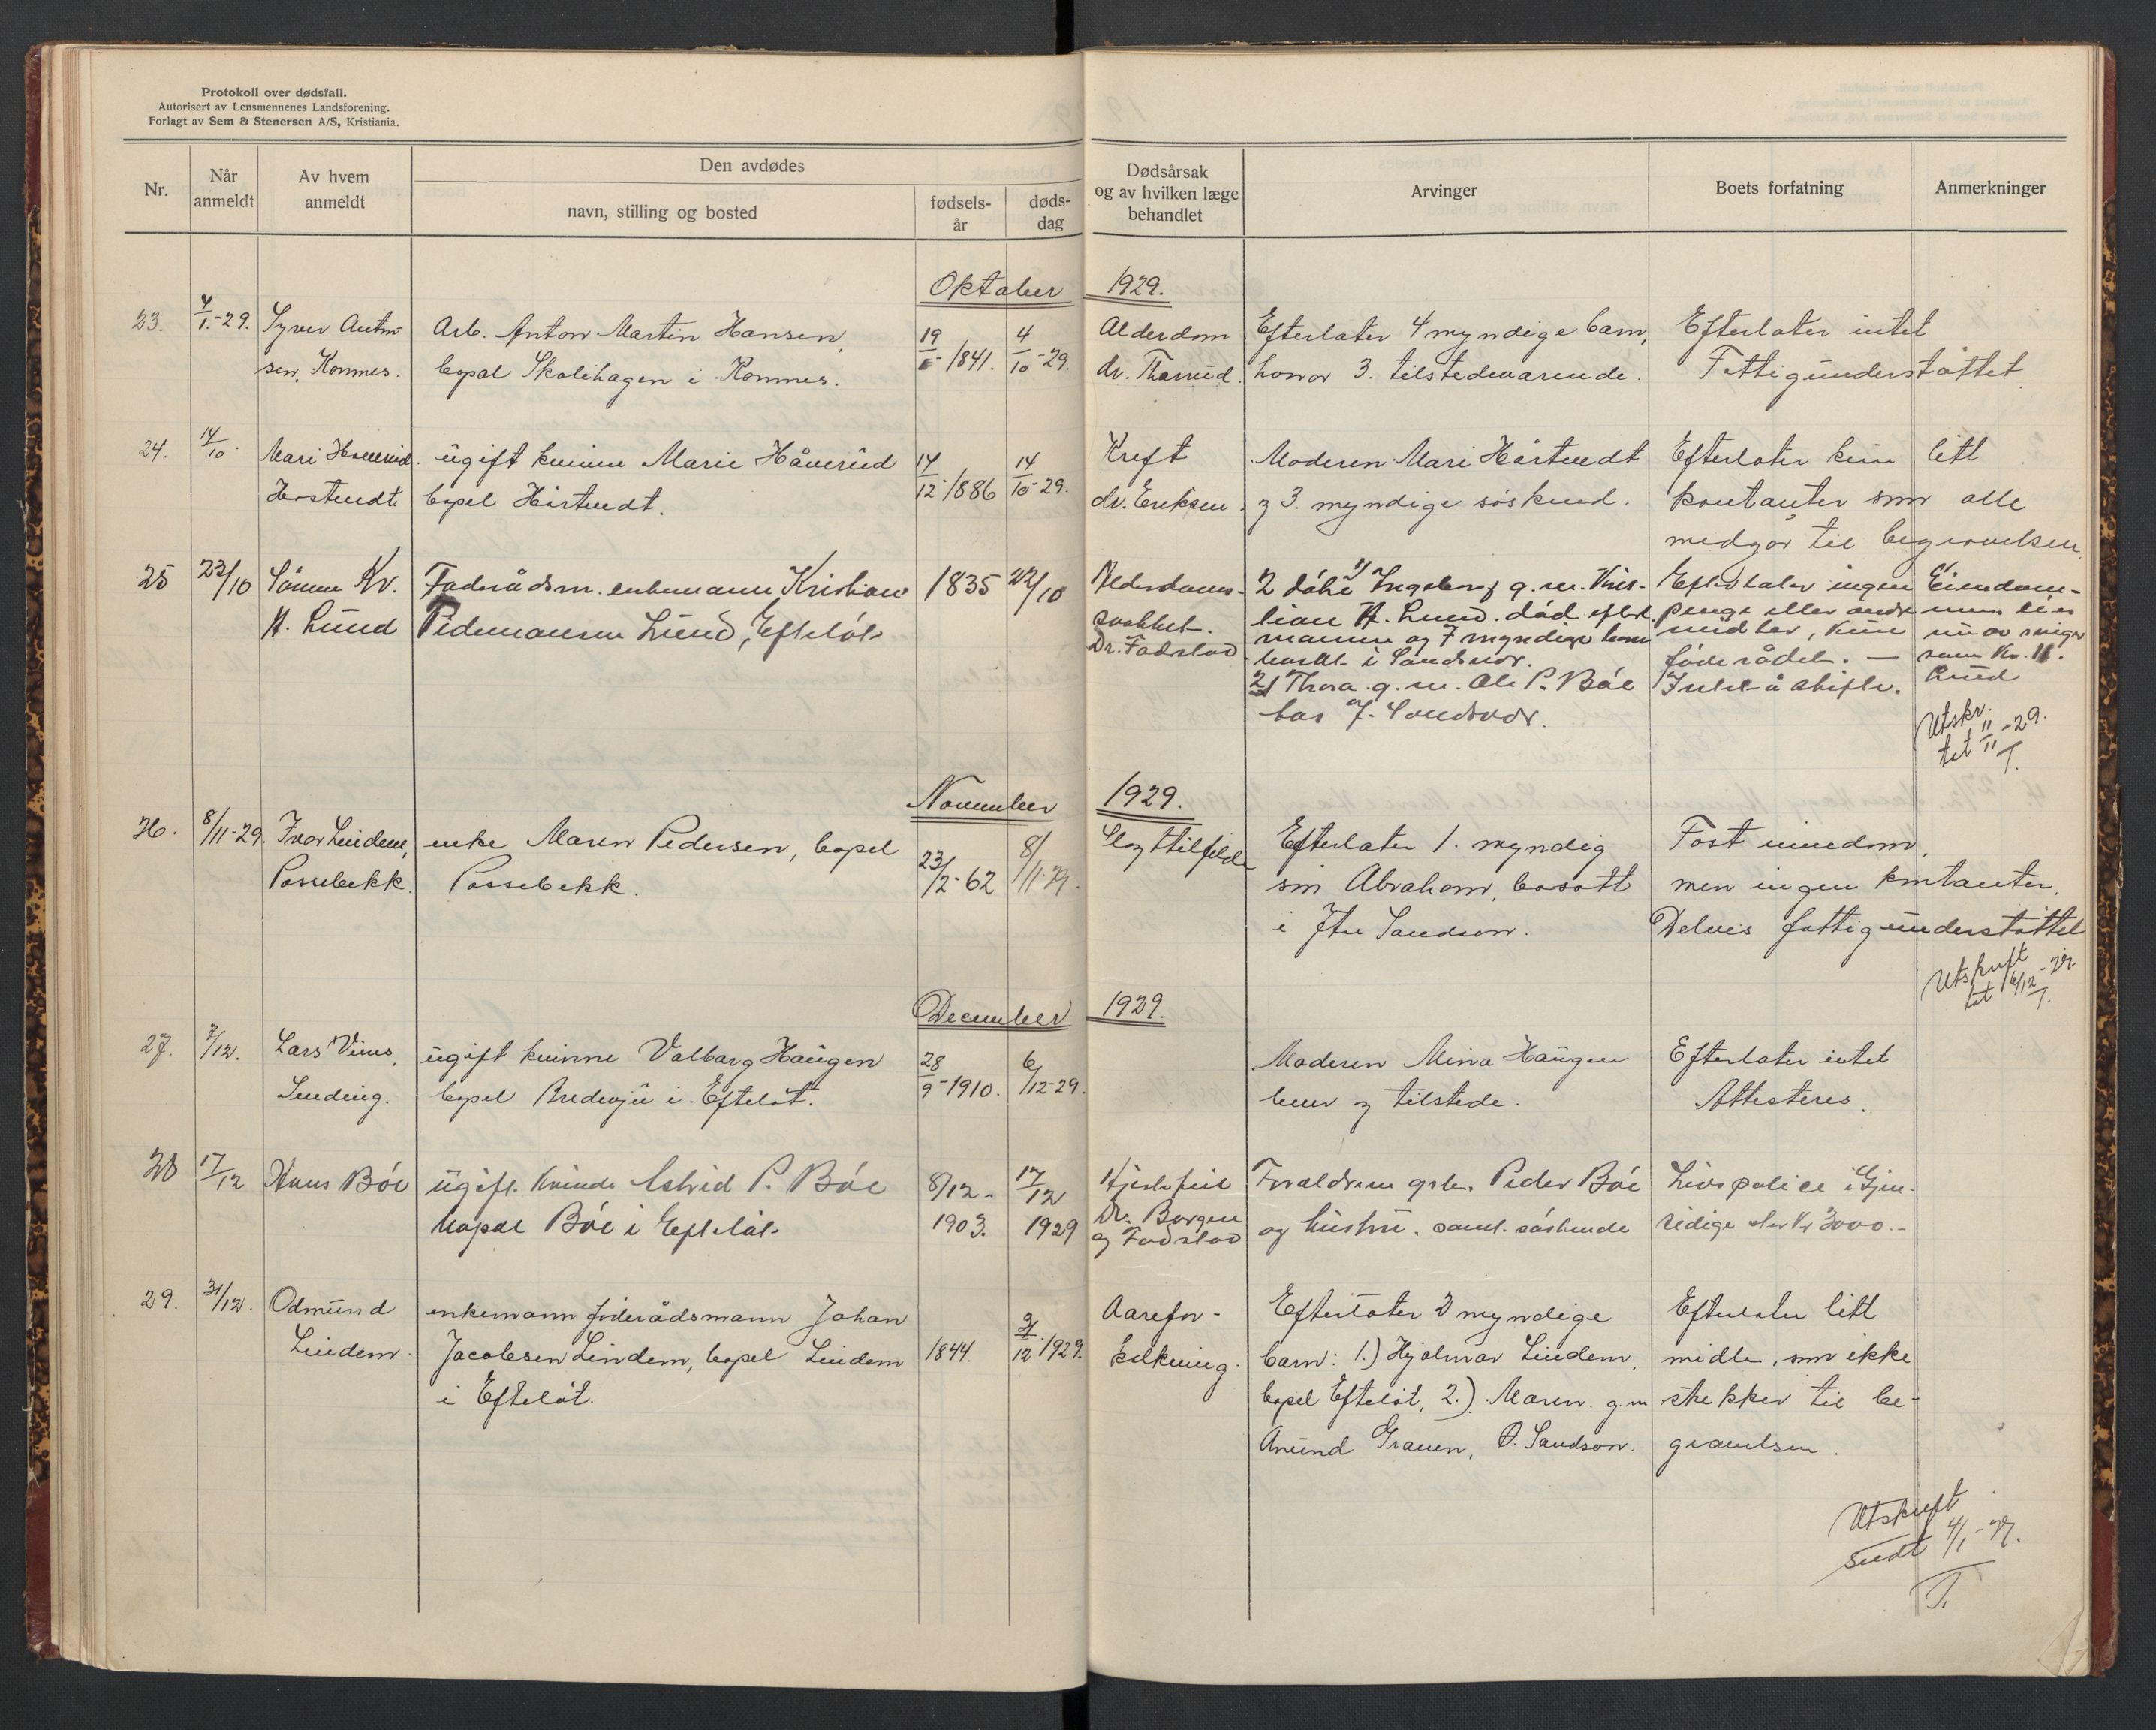 Protokoll over dødsfall.
Autorisert av Lensmennenes Landsforening.
Forlagt av Sem & Stenersen A/S, Kristiania.
Nr.
Når anmeldt
Av hvem anmeldt
Den avdødes
navn, stilling og bosted
fødsels-år
døds-dag
Dødsårsak og av hvilken læge behandlet
Arvinger
Boets forfatning
Anmerkninger
Oktober 1929.
23. Syver Antonsen, Komnes.
Arb. Anton Martin Hansen, bopæl Skolehagen i Komnes.
19 1841. 4/10-29.
Alderdom
Efterlater 4 myndige barn, hvorav 3. tilstedeværende.
Efterlater intet
Fattigunderstøttet
24. 14/10 Mari
ugift kvinne Marie Håverud
bopel
14/12-1886 14/10-29.
Kreft
dr. Eriksen
Moderen Mari
og 3. myndige søskend.
Efterlater kun litt
kontanter som alle
medgår til begravelsen.
25 22/10 Kr. H. Lund
Føderådsm. enkemann Kristian
Pedersen Lund, Efteløt
1835 22/10
Alderdoms-
svakhet.
Dr. Fadstad
2 døtre 1) Ingeborg g.m. Kris-
tian H. Lund. død efterl.
mannen og 7 myndige barn
bosat i Sandsvær.
2) Thora g.m. Ole P. Bøe
bos. Y. Sandsvær.
Efterlater ingen
penge eller andre
midler, kun
føderådet. —
Intet å skifte.
Eiendom-
men eies
nu av sviger
sønn Kr. H.
Lund
Utskr.
tat 11/11-29.
T.
November 1929.
26. 8/11-29. Ivar Lindem,
Possebekk.
enke Maren Pedersen, bopel
Possebekk.
23/2-62 8/11-29.
Slagtilfelde
Efterlater 1. myndig
søn Abraham, bosatt
i Ytre Sandsvær.
Fast eiendom,
men ingen kontanter.
Delvis fattigunderstøttet
Utskrift
tat 6/12-29.
T.
December 1929.
27. 7/12. Lars
ugift kvinne Valborg Haugen
bopel i Efteløt.
28/9-1910. 6/12-29.
Moderen Mina Haugen
lever og tilstede.
Efterlater intet
Attesteres.
28 17/12 Hans Bøe
ugift Kvinde Astrid P. Bøe
bopæl Bøe i Efteløt
8/12-1903. 17/12 1929
Hjertefeil
Dr. Borgen
og Fadstad
Forældrene grbr. Peder Bøe
og hustru. samt søskende
Livspolice i Gjen-
sidige stor Kr 3000.-
29. 31/12. Odmund
Lindem.
enkemann føderådsmann Johan
Jacobsen Lindem, bopel Lindem
i Efteløt.
1844. 31/12 1929.
Aarefor-
kalkning.
Efterlater 2 myndige
barn: 1.) Hjalmar Lindem,
bopel Efteløt, 2.) Maren g.m
Anund Graven, Ø. Sandsvær.
Efterlater litt
midler, som ikke
strekker til be-
gravelsen.
Utskrift
sendt
T.